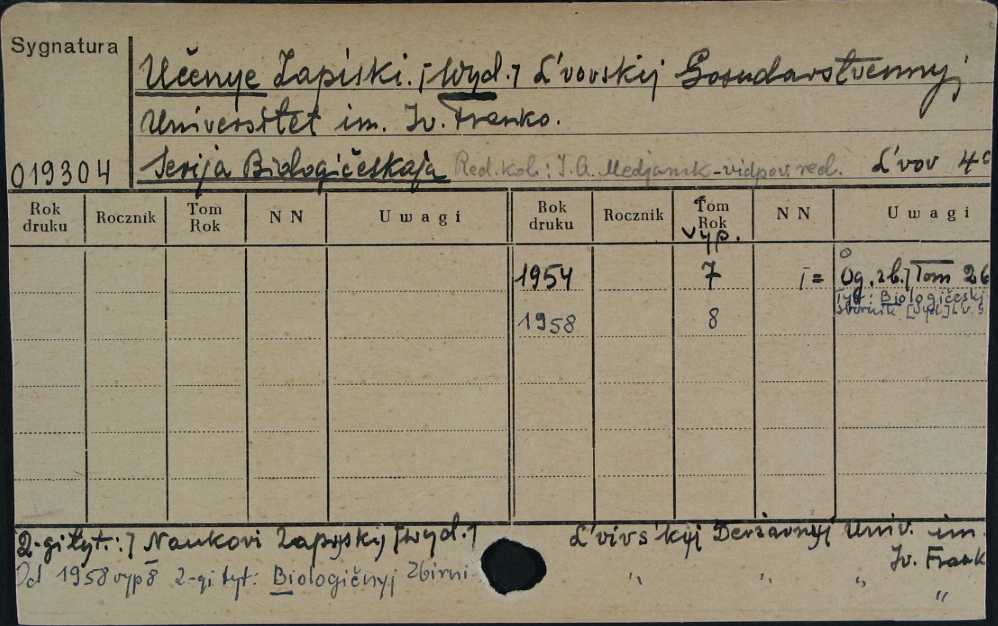 Sygnatura
Učenye Zapiski. [Wyd.] L'vovskij Gosudarstvennyj
Universitet im. Iv. Franko.
019304 Serija Biologičeskaja Red. kol.: I. A. Medjanik - vidpov. red. L'vov 4°
Rok druku Rocznik Tom Rok NN Uwagi Rok druku Rocznik Tom Rok NN Uwagi
vyp.
1954 7 [= Og. zb.] Tom 26
Tyt: Biologičeskij
1958 8 Sbornik [Wyd.] L.
2-gi tyt.:] Naukovi Zapysky [wyd.] L'vivs'kyj Deržavnyj Univ. im.
Iv. Frank
Od 1958 vyp 8 2-gi tyt: Biologičnyj Zbirni- " " " "